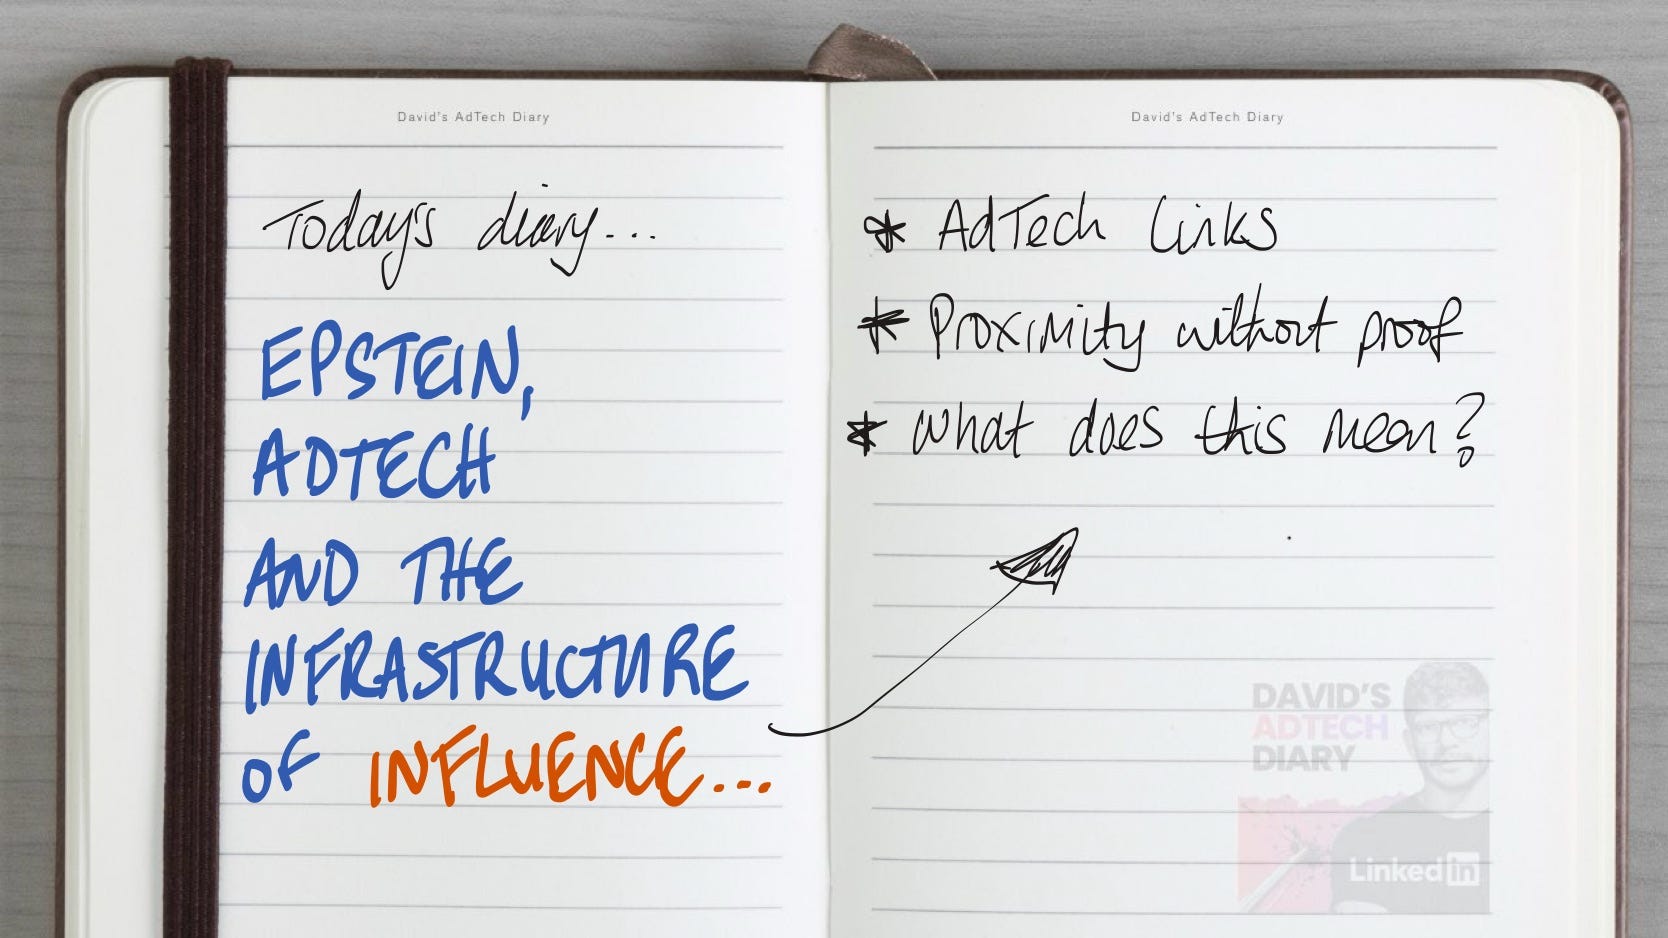 David's AdTech Diary
Today's diary...
EPSTEIN,
ADTECH
AND THE
INFRASTRUCTURE
OF INFLUENCE...
David's AdTech Diary
* AdTech Links
* Proximity without proof
* What does this mean?
DAVID'S
ADTECH
DIARY
Linked in